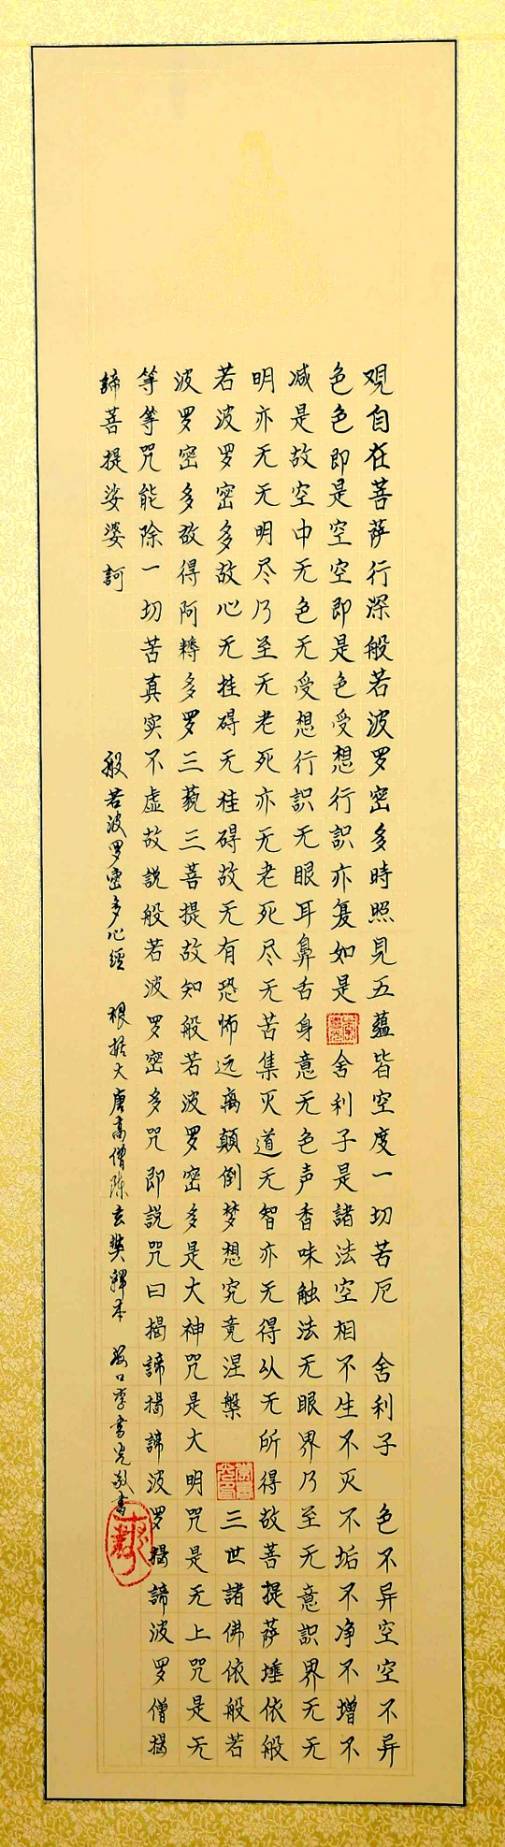 观自在菩萨行深般若波罗密多時照見五蕴皆空度一切苦厄 舍利子 色不异空空不异
色色即是空空即是色受想行识亦复如是 舍利子是諸法空相不生不灭不垢不净不增不
减是故空中无色无受想行识无眼耳鼻舌身意无色声香味触法无眼界乃至无意识界无无
明亦无无明尽乃至无老死亦无老死尽无苦集灭道无智亦无得以无所得故菩提萨埵依般
若波罗密多故心无挂碍无挂碍故无有恐怖远离颠倒梦想究竟涅槃 三世諸佛依般若
波罗密多故得阿耨多罗三藐三菩提故知般若波罗密多是大神咒是大明咒是无上咒是无
等等咒能除一切苦真实不虚故説般若波罗密多咒即説咒曰揭諦揭諦波罗揭諦波罗僧揭
諦菩提娑婆訶
般若波罗密多心经 根据大唐高僧陈玄奘譯本 李書光敬書